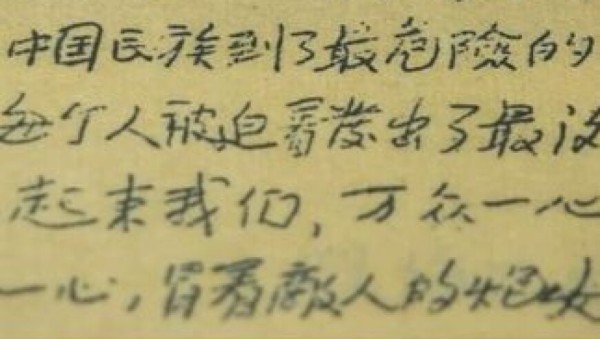 中国民族到了最危險的
每个人被迫着發出了最後
起来我们，万众一心
一心，冒着敵人的炮火